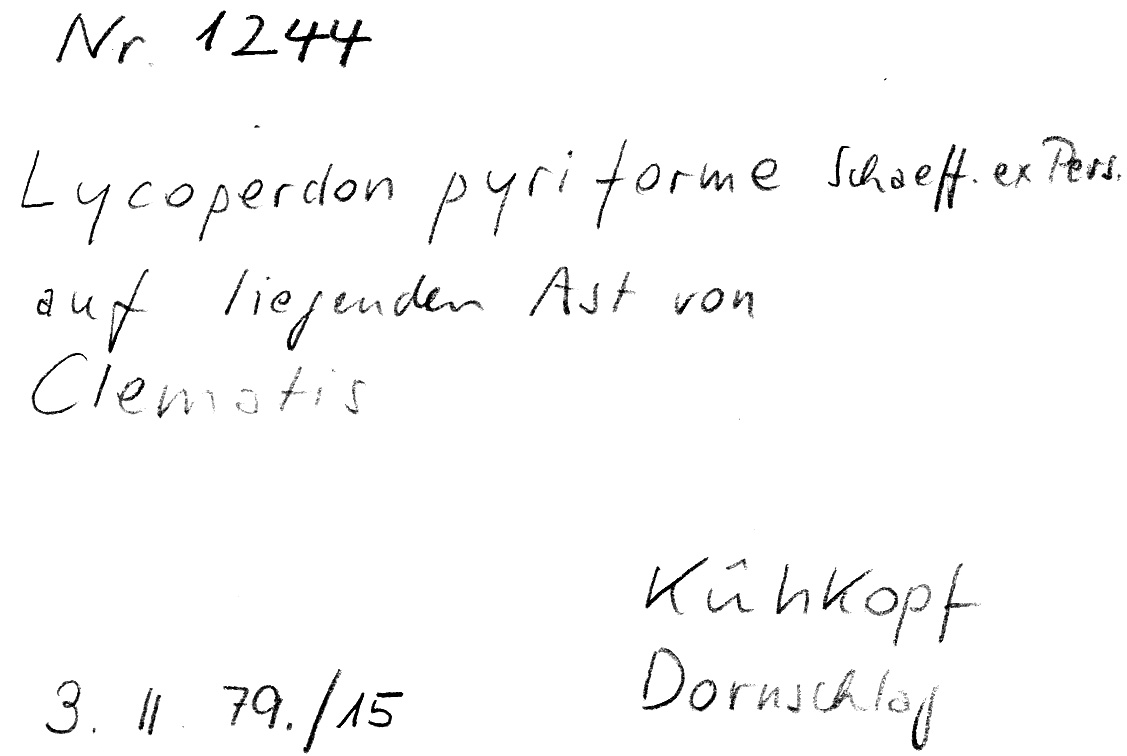 Nr. 1244
Lycoperdon pyriforme Schaeff. ex Pers.
auf liegenden Ast von
Clematis
Kühkopf
Dornschlag
3. II 79./15